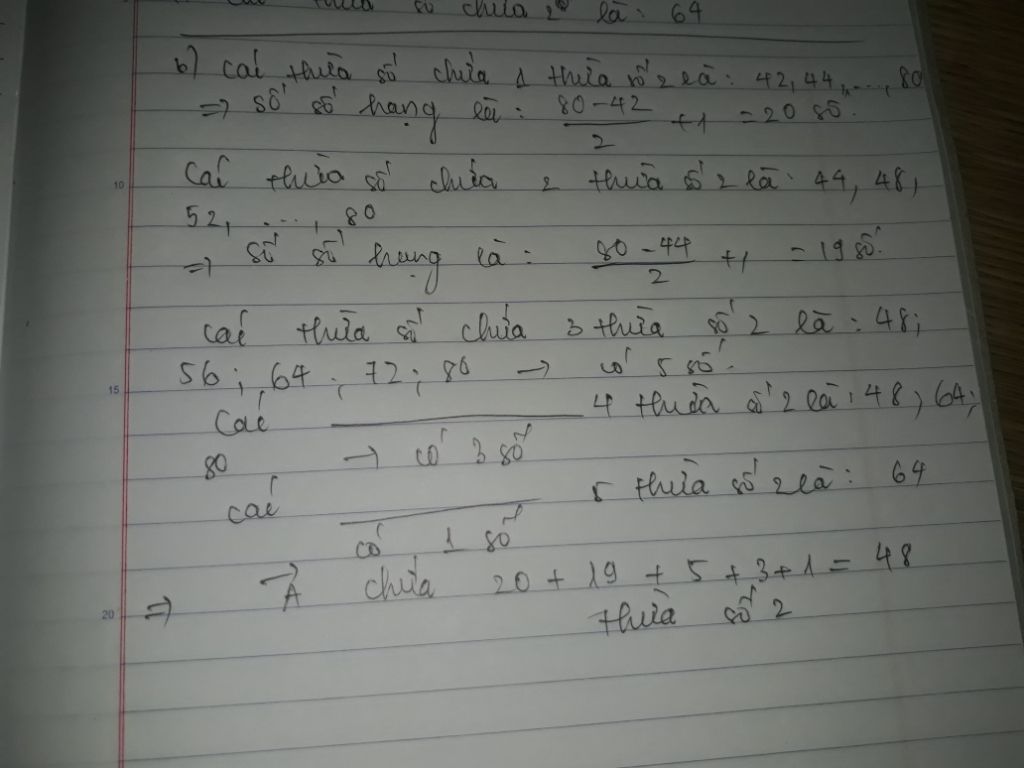 Các thừa số chứa 2⁶ là: 64
b) Các thừa số chứa 1 thừa số 2 là: 42, 44, ..., 80
=> số số hạng là: \frac{80-42}{2} + 1 = 20 số.
Các thừa số chứa 2 thừa số 2 là: 44, 48,
52, ..., 80
=> số số hạng là: \frac{80-44}{2} + 1 = 19 số.
Các thừa số chứa 3 thừa số 2 là: 48;
56; 64; 72; 80 → có 5 số.
Các ——— 4 thừa số 2 là: 48, 64;
80 → có 3 số
Các ——— 5 thừa số 2 là: 64
có 1 số
=> A chứa 20 + 19 + 5 + 3 + 1 = 48
thừa số 2